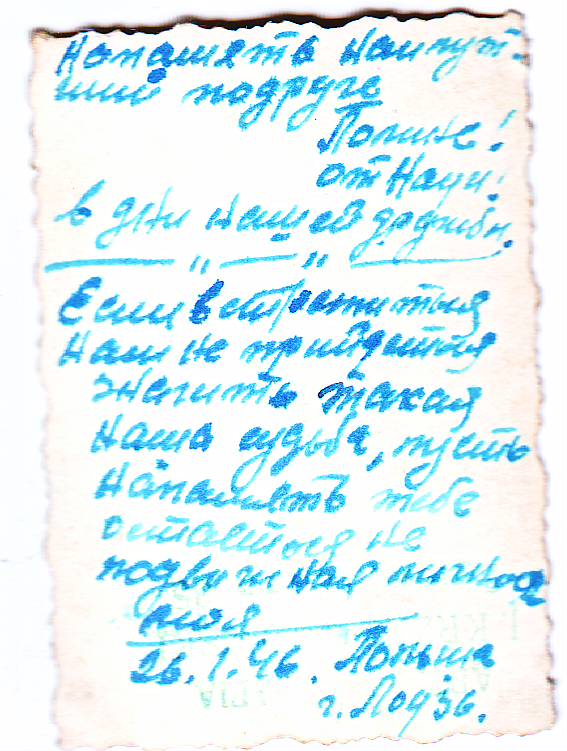 На память наилут-
ший подруге
Полине!
от Нади!
в дни нашей дружбы.
" "
Если встретиться
нам не прийдеться
значить такая
наша судьба, пусть
на память тебе
остаеться не
подвижная личность
моя
26.1.46. Польша
г. Лодзь.